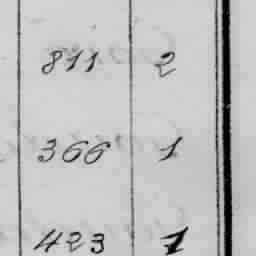 811 2
366 1
423 1